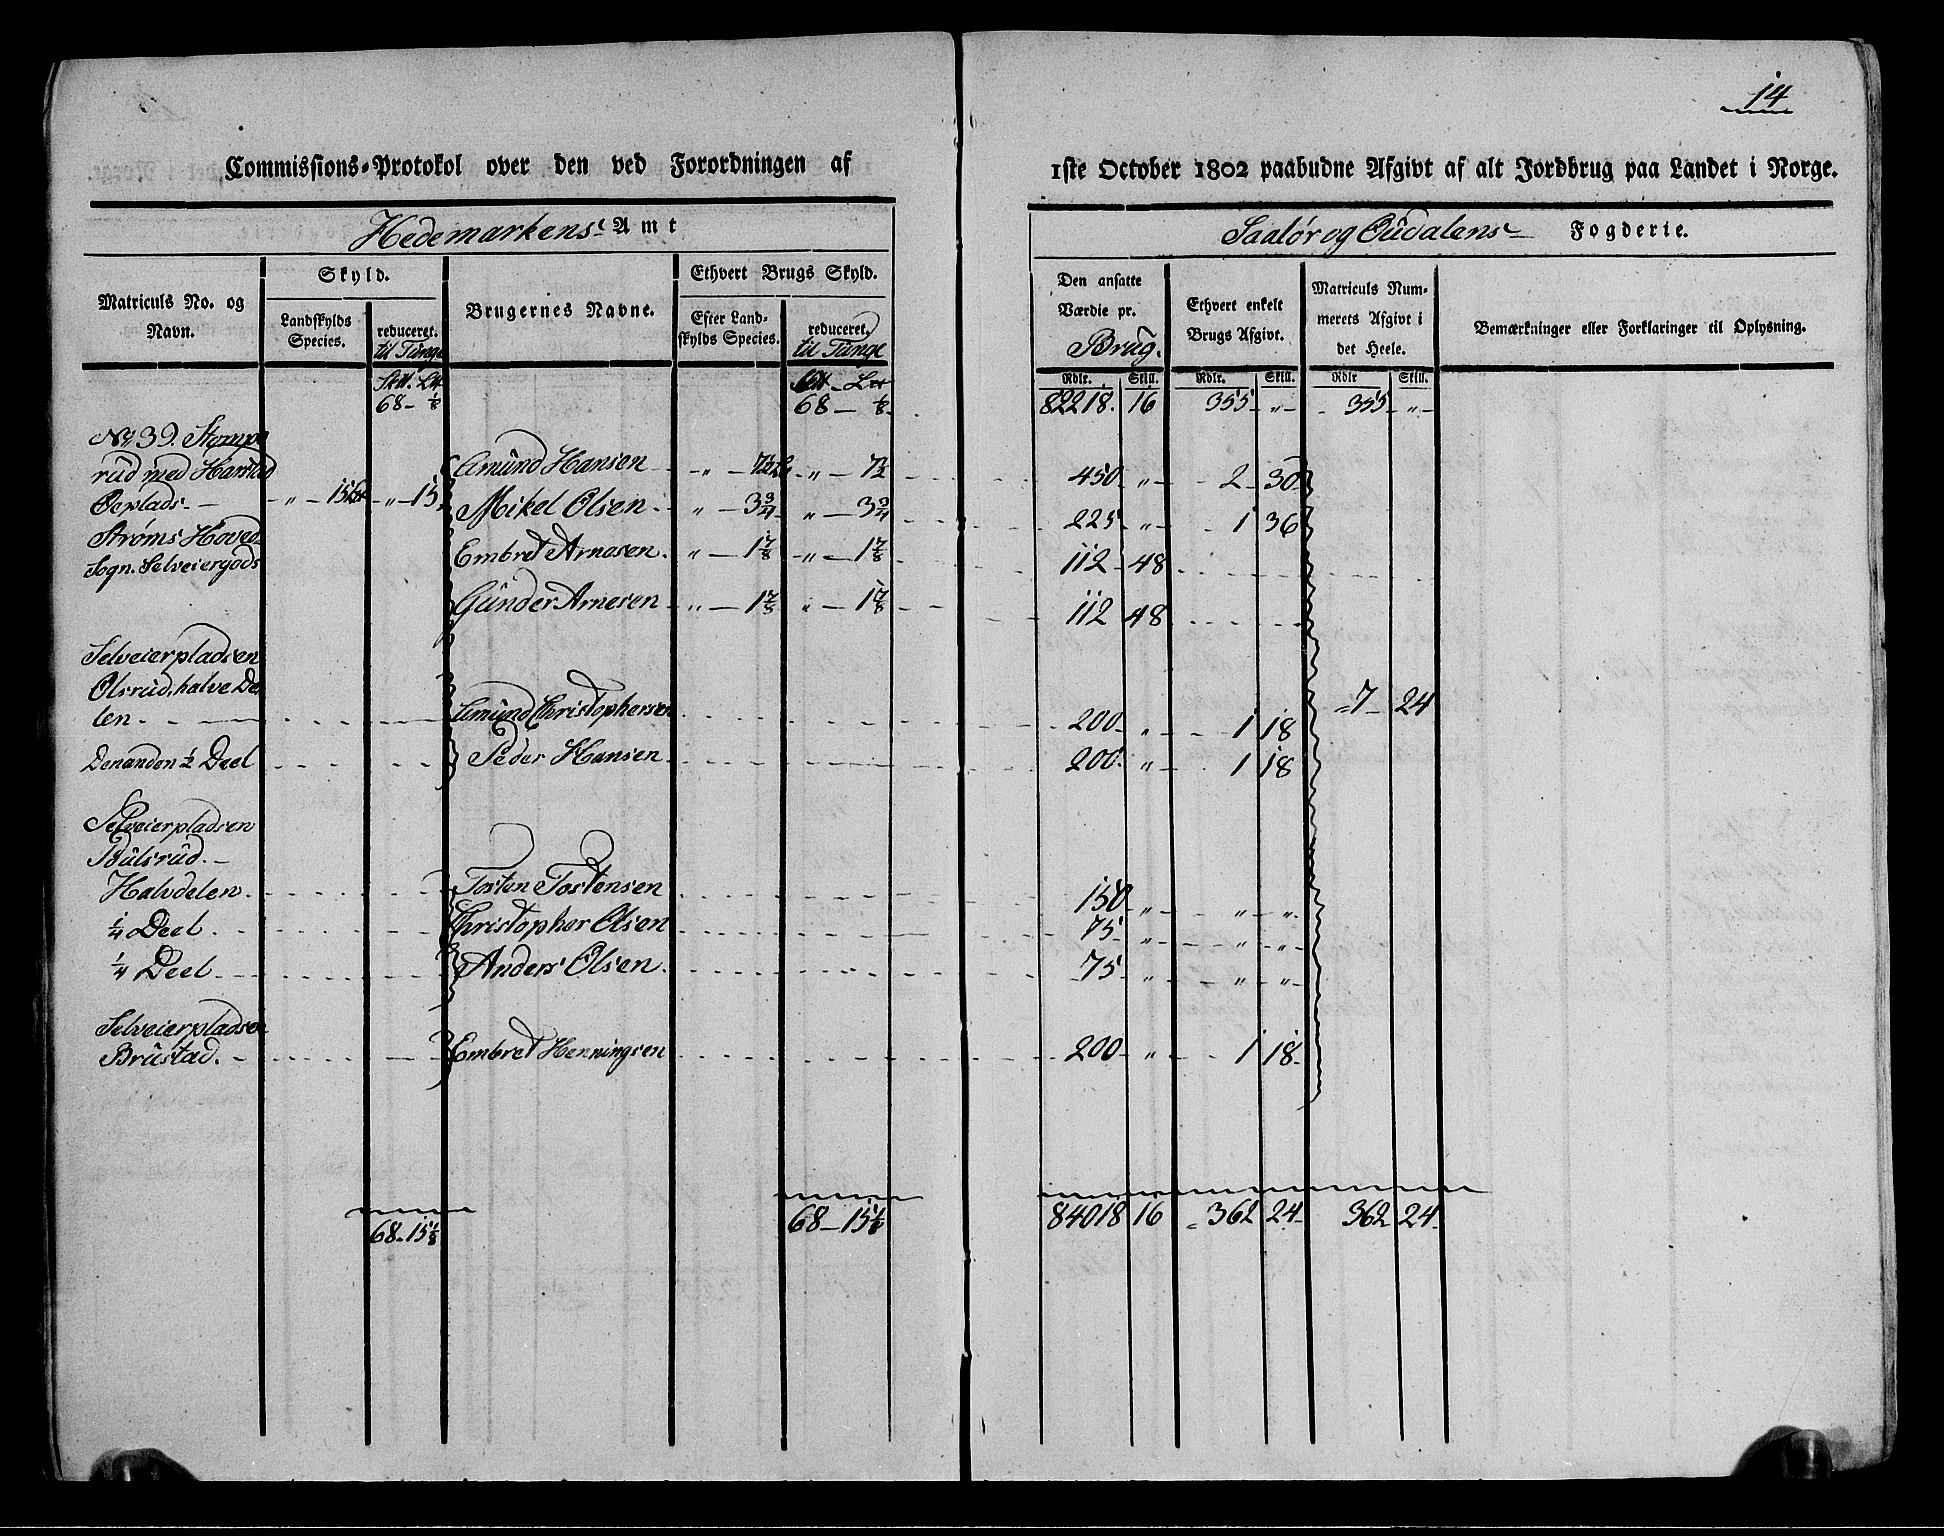 14
Commissions-Protokol over den ved Forordningen af 1ste October 1802 paabudne Afgivt af alt Jordbrug paa Landet i Norge.
Hedemarkens Amt Saalør og Oudalens Fogderie.
Matriculs No. og Navn. Skyld. Landskylds Species. reduceret. til Tunge Brugernes Navne. Ethvert Brugs Skyld. Efter Landskylds Species. reduceret. til Tunge Den ansatte Værdie pr. Brug. Ethvert enkelt Brugs Afgivt. Matriculs Nummerets Afgivt i det Heele. Bemærkninger eller Forklaringer til Oplysning.
Rdlr. Skill. Rdlr. Skill. Rdlr Skill.
68 - 1/8 68 - 1/8 82218. 16 355 - „ - 355 - „ -
No 39. Stompe
rud med Harstad Amund Hansen - „ - 7½ - „ - 7½ 450 „ - 2 - 30
Øeplads - „ - 15 - „ - 15 Mikel Olsen - „ - 3¾ „ - 3¾ 225 „ - 1 36
Strøms Hoved
Sogn. Selveiergods Embret Arnesen. „ - 1⅞ - „ - 1⅞ 112 - 48
Gunder Arnesen - „ - 1⅞ „ - 1⅞ 112 48
Selveierpladsen
Olsrud, halve De
len - Amund Christophersen 200 - „ - 1 18 7 - 24
Den anden ½ Deel Peder Hansen 200. „ 1 18
Selveierpladsen
Bulsrud. -
Halvdelen Tosten Tostensen 150 „ - „ - „
¼ Deel. Christopher Olsen 75 - „ - „ - „
¼ Deel Anders Olsen 75 - „ - „ - „
Selveierpladsen
Brustad. - Embret Henningsen 200 - „ - 1 18
68 - 15⅛ 68 - 15⅛ 84018 16 362 24 362 24